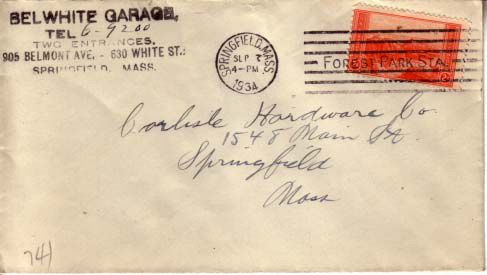 BELWHITE GARAGE,
TEL 6-9200
TWO ENTRANCES.
905 BELMONT AVE. - 630 WHITE ST.:
SPRINGFIELD, MASS.
SPRINGFIELD, MASS.
SEP
4-PM
1934
FOREST PARK STA.
2
Carlisle Hardware Co.
1548 Main St.
Springfield
Mass
741